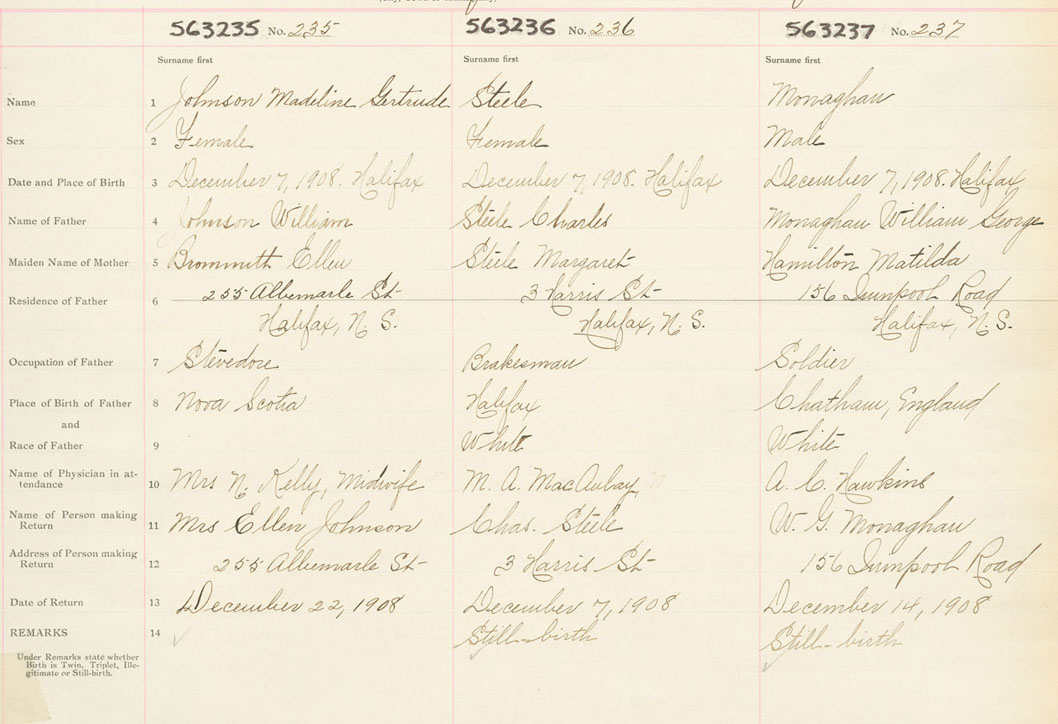 563235 No. 235 563236 No. 236 563237 No. 237
Surname first Surname first Surname first
Name 1 Johnson Madeline Gertrude Steele Monaghan
Sex 2 Female Female Male
Date and Place of Birth 3 December 7, 1908. Halifax December 7, 1908. Halifax December 7, 1908. Halifax
Name of Father 4 Johnson William Steele Charles Monaghan William George
Maiden Name of Mother 5 Ellen Steele Margaret Hamilton Matilda
Residence of Father 6 255 Albemarle St 3 Harris St 156 Quinpool Road
Halifax, N. S. Halifax, N. S. Halifax, N. S.
Occupation of Father 7 Stevedore Brakesman Soldier
Place of Birth of Father 8 Nova Scotia Halifax Chatham, England
and
Race of Father 9 White White
Name of Physician in at-
tendance 10 Mrs N. Kelly, Midwife M. A. MacAulay A. C. Hawkins
Name of Person making
Return 11 Mrs Ellen Johnson Chas. Steele W. G. Monaghan
Address of Person making
Return 12 255 Albemarle St 3 Harris St 156 Quinpool Road
Date of Return 13 December 22, 1908 December 7, 1908 December 14, 1908
REMARKS 14 Still-birth Still-birth
Under Remarks state whether
Birth is Twin, Triplet, Ille-
gitimate or Still-birth.